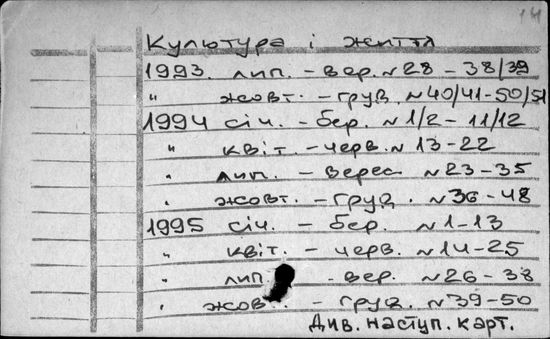 14
Культура і життя
1993. лип. – вер. № 28 – 38/39
" жовт. – груд. № 40/41 – 50/51
1994 січ. – бер. № 1/2 – 11/12
" квіт. – черв. № 13 – 22
" лип. – верес № 23 – 35
" жовт. – груд. № 36 – 48
1995 січ. – бер. № 1 – 13
" квіт. – черв. № 14 – 25
" лип. – вер. № 26 – 38
" жовт. – груд. № 39 – 50
Див. наступ. карт.